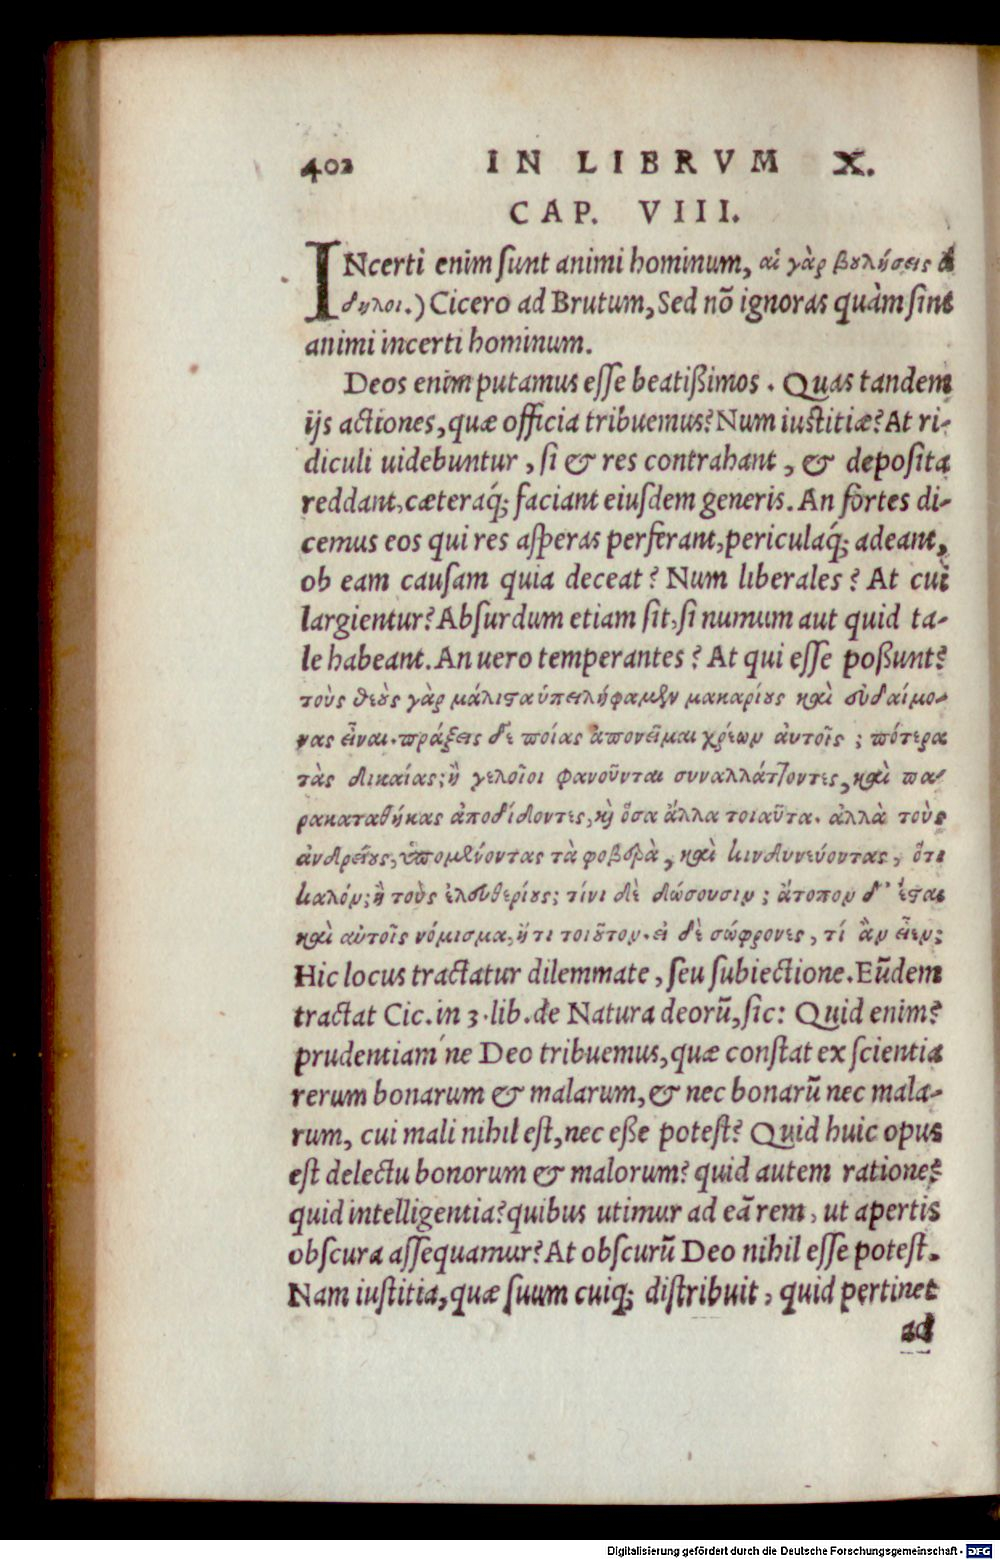 402 IN LIBRVM X.
CAP. VIII.
INcerti enim ſunt animi hominum, αἱ γὰρ βουλήσεις ἄ
δηλοι.) Cicero ad Brutum, Sed nõ ignoras quàm ſint
animi incerti hominum.
Deos enim putamus eſſe beatißimos. Quas tandem
ijs actiones, quæ officia tribuemus? Num iuſtitiæ? At ri-
diculi uidebuntur, ſi & res contrahant, & depoſita
reddant, cæteraq́; faciant eiuſdem generis. An fortes di-
cemus eos qui res aſperas perferant, periculaq́; adeant,
ob eam cauſam quia deceat? Num liberales? At cui
largientur? Abſurdum etiam ſit, ſi numum aut quid ta-
le habeant. An uero temperantes? At qui eſſe poßunt?
τοὺς θεοὺς γὰρ μάλιστα ὑπειλήφαμεν μακαρίους καὶ εὐδαίμο-
νας εἶναι. πράξεις δὲ ποίας ἀπονεῖμαι χρέων αὐτοῖς; πότερα
τὰς δικαίας; ἢ γελοῖοι φανοῦνται συναλλάττοντες, καὶ πα-
ρακαταθήκας ἀποδίδοντες, καὶ ὅσα ἄλλα τοιαῦτα. ἀλλὰ τοὺς
ἀνδρείους, ὑπομένοντας τὰ φοβερὰ, καὶ κινδυνεύοντας, ὅτι
καλόν; ἢ τοὺς ἐλευθερίους; τίνι δὲ δώσουσιν; ἄτοπον δ' ἔσται
καὶ αὐτοῖς νόμισμα, ἤ τι τοιοῦτον. εἰ δὲ σώφρονες, τί ἂν εἶεν;
Hic locus tractatur dilemmate, ſeu ſubiectione. Eũdem
tractat Cic. in 3. lib. de Natura deorũ, ſic: Quid enim?
prudentiam´ne Deo tribuemus, quæ conſtat ex ſcientia
rerum bonarum & malarum, & nec bonarũ nec mala-
rum, cui mali nihil eſt, nec eße poteſt? Quid huic opus
eſt delectu bonorum & malorum? quid autem ratione?
quid intelligentia? quibus utimur ad eã rem, ut apertis
obſcura aſſequamur? At obſcurũ Deo nihil eſſe poteſt.
Nam iuſtitia, quæ ſuum cuiq; diſtribuit, quid pertinet
ad
Digitalisierung gefördert durch die Deutsche Forschungsgemeinschaft - DFG